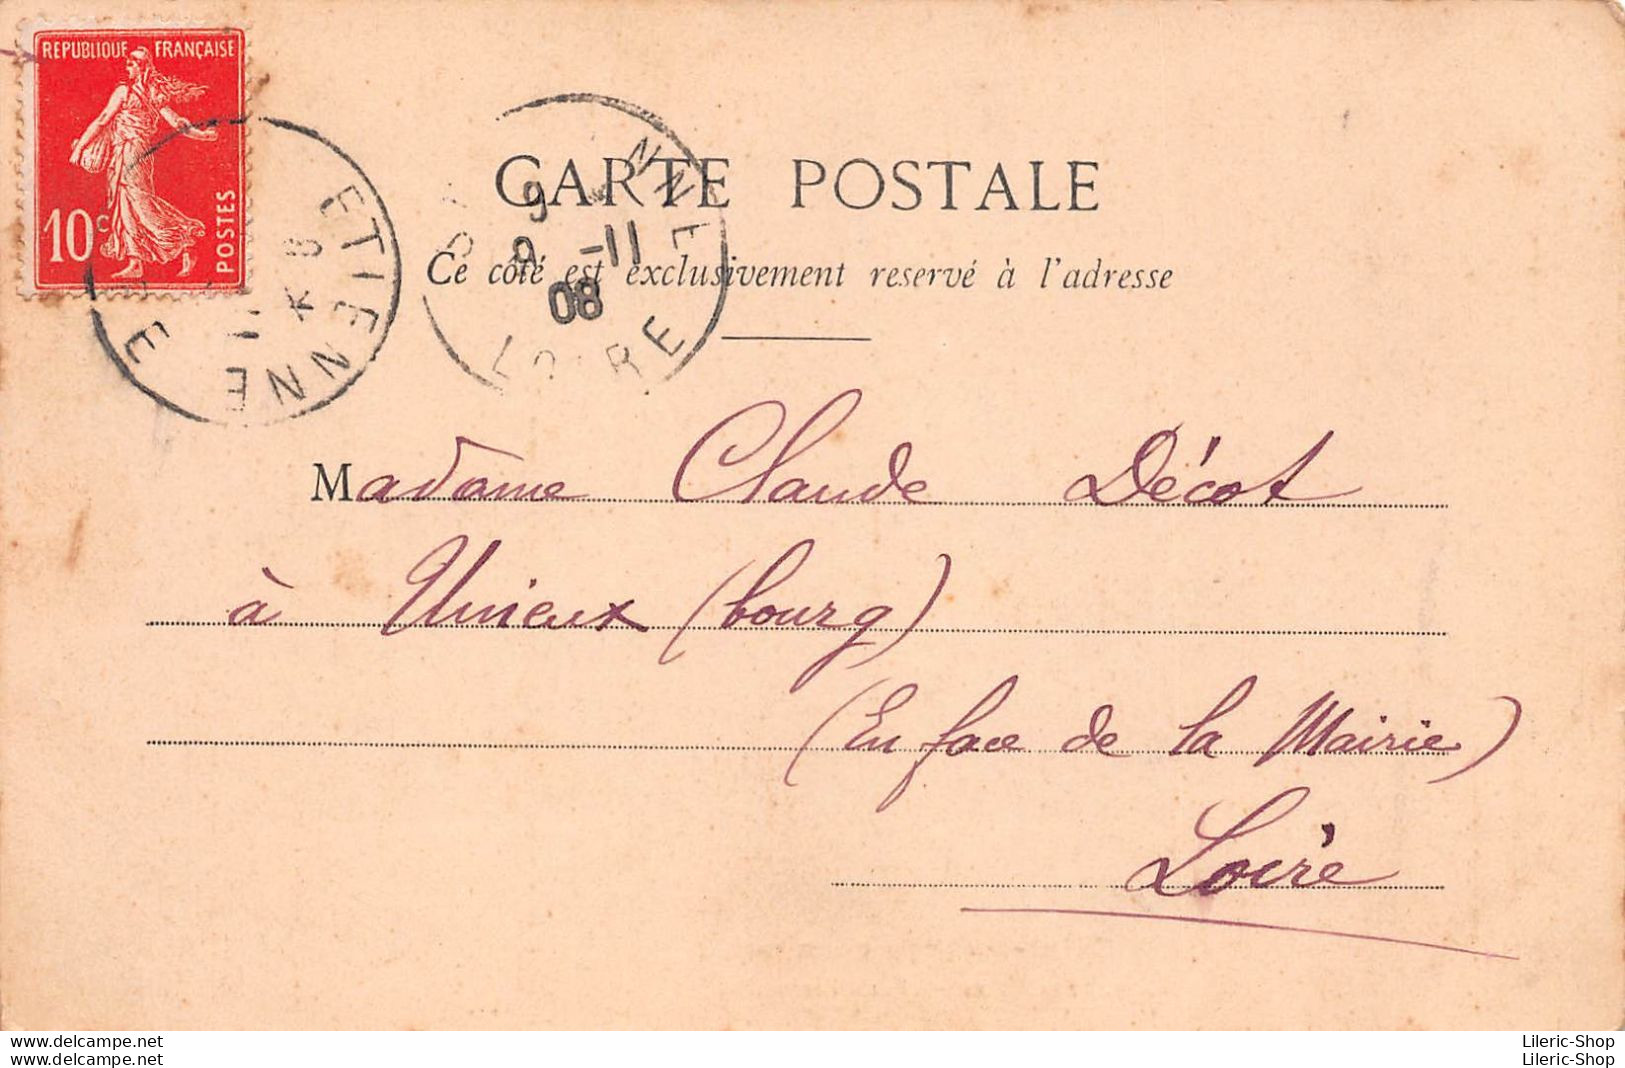 REPUBLIQUE FRANÇAISE
10c
POSTES
ETIENNE
NNE
9
9 -11
08
LOIRE
CARTE POSTALE
Ce côté est exclusivement reservé à l'adresse
Madame Claude Décot
à Unieux (bourg)
(En face de la Mairie)
Loire
delcampe.net
delcampe.net
Lileric-Shop
Lileric-Shop